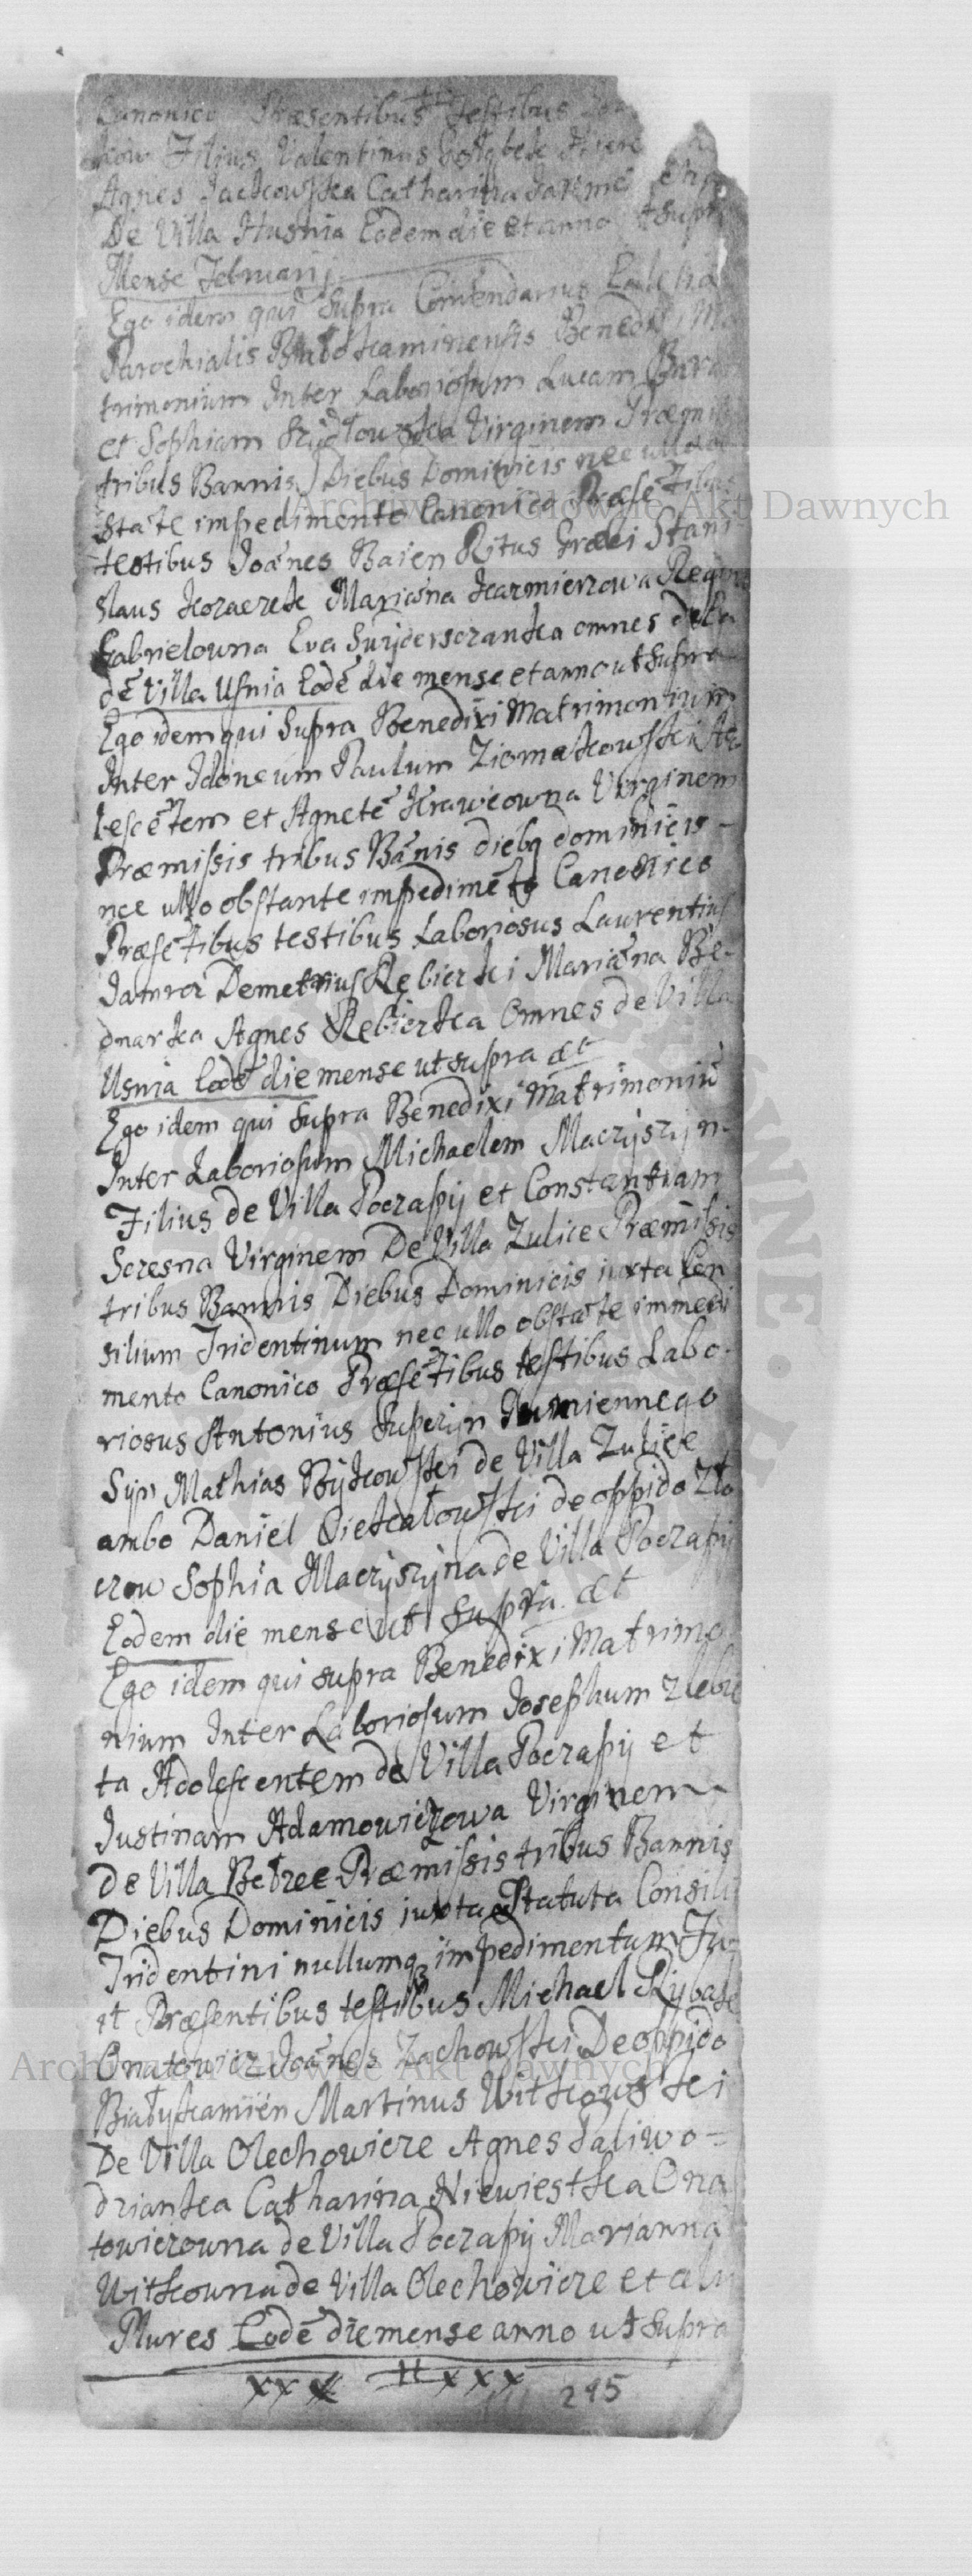 Canonico Præsentibus testibus
Filius Valentinus
Agnes Jackowska Catharina
De Villa Husnia Eodem die et anno ut supra
Mense Februarij
Ego idem qui supra Comendarius Eccle
Parochialis Białoskaminensis Benedixi Ma
trimonium Inter Laboriosum Lucam
et Sophiam Szydłowska Virginem Præmis
tribus Bannis Diebus Dominicis nec ullo ob
state impedimento Canonico Præsetibus
testibus Joanes Baien Ritus Græci Stani
slaus Kozaczek Mariana Kazmierzowa Regina
Gabrielowna Eva omnes de ea
de Villa Usnia Eode die mense et anno ut supra
Ego idem qui supra Benedixi Matrimonium
Inter Idoneum Paulum Ziomatkowski Ado
lescetem et Agnete Krawcowna Virginem
Præmissis tribus Banis diebq dominicis -
nec ullo obstante impedimeto Canonico
Præsetibus testibus Laboriosus Laurentius
Jamroz Demetrius Rębierki Mariana Be-
dnarka Agnes Rebierka Omnes de Villa
Usnia Eode die mense ut supra æt
Ego idem qui supra Benedixi Matrimoniu
Inter Laboriosum Michaelem Maczyszyn-
Filius de Villa Poczapy et Constantiam
Sczesna Virginem De Villa Zulice Præmissis
tribus Bannis Diebus Dominicis iuxta Con
silium Tridentinum nec ullo obstate immedi
mento Canonico Præsetibus testibus Labo-
riosus Antonius
Syn Mathias Bykowski de Villa Zulice
ambo Daniel Piekałowski de oppido Zło
czow Sophia Maczyszyna de Villa Poczapy
Eodem die mense ut supra æt
Ego idem qui supra Benedixi Matrimo
nium Inter Laboriosum Josephum
ta Adolescentem de Villa Poczapy et
Justinam Adamowiczowa Virginem
De Villa Bełzec Præmissis tribus Bannis
Diebus Dominicis iuxta Statuta Consili
Tridentini nullumq impedimentum Fu-
it Præsentibus testibus Michael Rybak
Onatowicz Joanes Zachowski De oppido
Białyskamien Martinus Witkowski
De Villa Olechowicze Agnes Paliwo=
dzianka Catharina Niewiestka Ona
towiczowna de Villa Poczapy Marianna
Witkowna de Villa Olechowicze et alij
Plures Eode die mense anno ut supra
xxx H xxx 245
Archiwum Główne Akt Dawnych
Archiwum Główne Akt Dawnych